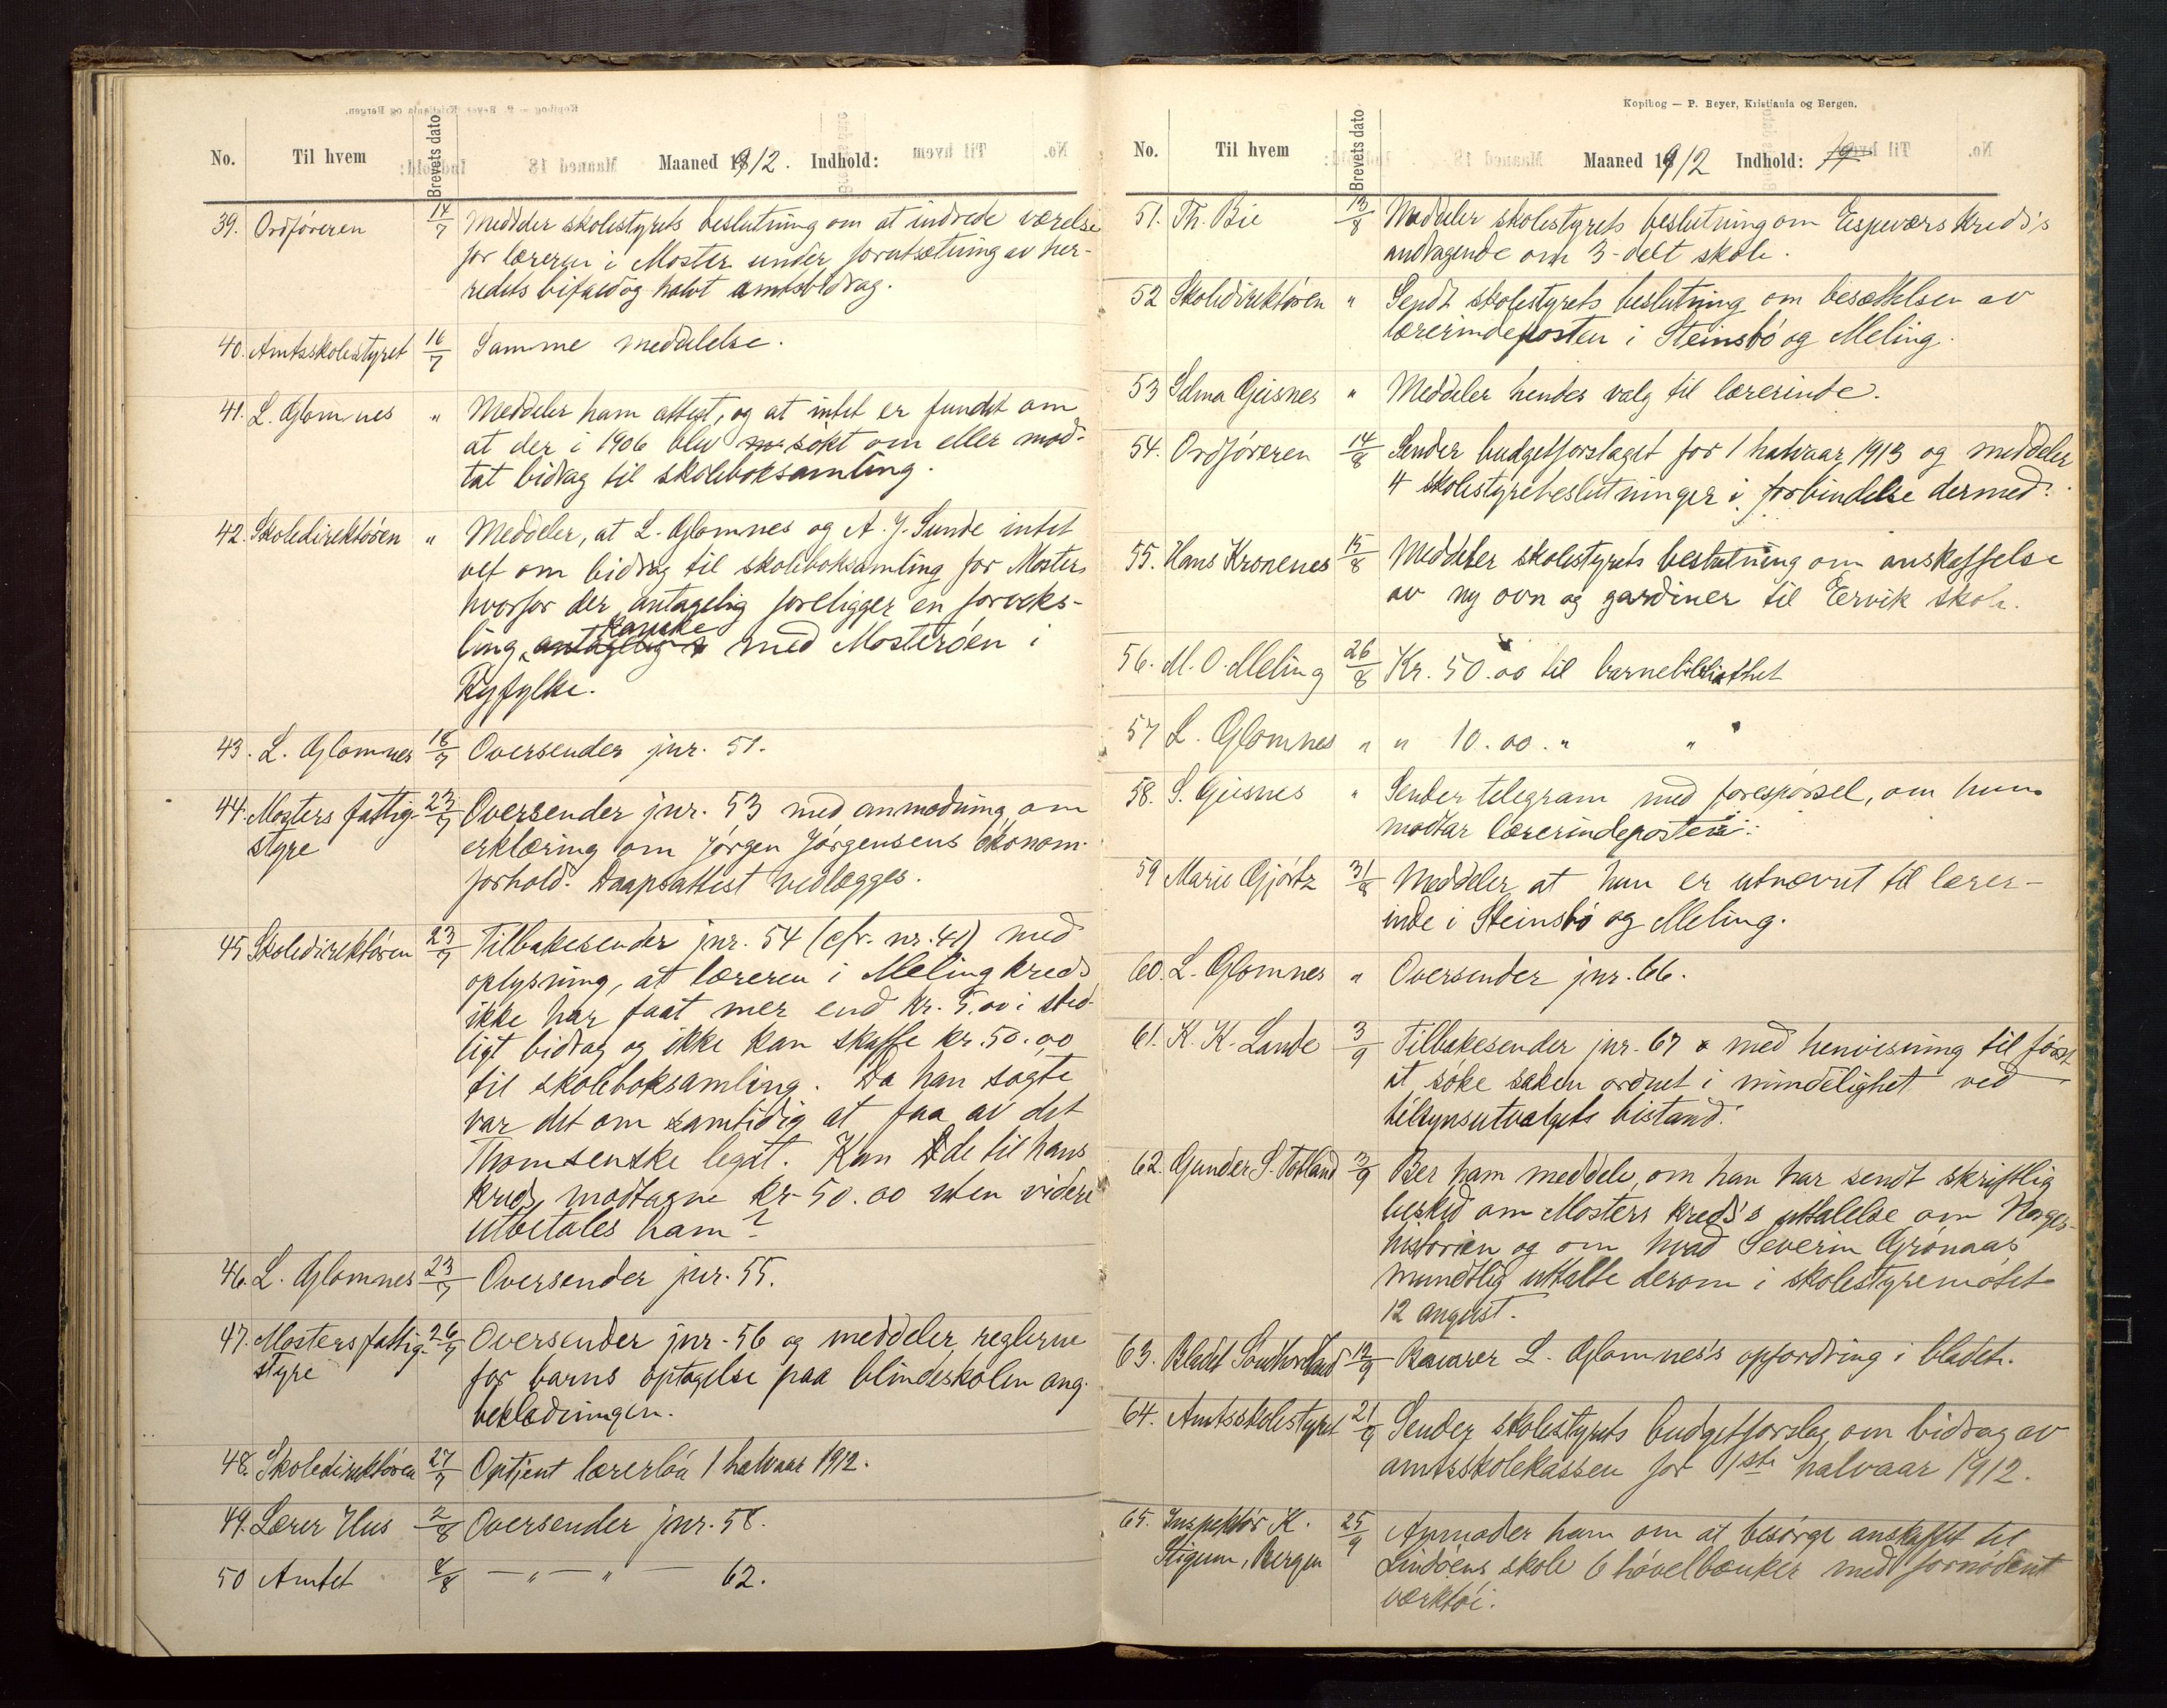 Kopibog — P. Beyer, Kristiania og Bergen.
No. Til hvem Brevets dato Maaned 1912. Indhold:
39. Ordføreren 14/7 Meddeler skolestyrets beslutning om at indrede værelse
for læreren i Moster under forutsætning av her-
redets bifald og halvt amtsbidrag.
40. Amtsskolestyret 16/7 Samme meddelelse.
41. L. Glomnes " Meddeler ham attest, og at intet er fundet om
at der i 1906 blev søkt om eller mod-
tat bidrag til skoleboksamling.
42. Skoledirektøren " Meddeler, at L. Glomnes og A. J. Sunde intet
vet om bidrag til skoleboksamling for Moster,
hvorfor der antagelig foreligger en forveks-
kanske
ling, antagelig med Mosterøen i
Ryfylke.
43. L. Glomnes 18/7 Oversender jnr. 51.
44. Mosters fattig- 23/7 Oversender jnr. 53 med anmodning om
styre erklæring om Jørgen Jørgensens økonom.
forhold. Daapsattest vedlægges.
45 Skoledirektøren 23/7 Tilbakesender jnr. 54 (cfr. nr. 41) med
oplysning, at læreren i Meling kreds
ikke har faat mer end kr. 5.00 i sted-
ligt bidrag og ikke kan skaffe kr. 50.00
til skoleboksamling. Da han søgte
var det om samtidig at faa av det
Thomsenske legat. Kan de til hans
kreds modtagne kr. 50.00 uten videre
utbetales ham?
46. L. Glomnes 23/7 Oversender jnr. 55.
47. Mosters fattig- 26/7 Oversender jnr. 56 og meddeler reglerne
styre for barns optagelse paa blindeskolen ang.
beklædningen.
48. Skoledirektøren 27/7 Optjent lærerløn 1 halvaar 1912.
49. Lærer Hus 2/8 Oversender jnr. 58.
50 Amtet 8/8 — " — " — 62.
Kopibog — P. Beyer, Kristiania og Bergen.
No. Til hvem Brevets dato Maaned 1912 Indhold: 19
51. Th. Bie 13/8 Meddeler skolestyrets beslutning om Espeværs kreds's
andragende om 3-delt skole.
52 Skoledirektøren " Sendt skolestyrets beslutning om besættelsen av
lærerindeposten i Steinsbø og Meling.
53 Selma Gjesnes " Meddeler hendes valg til lærerinde.
54. Ordføreren 14/8 Sender budgetforslaget for 1 halvaar 1913 og meddeler
4 skolestyrebeslutninger i forbindelse dermed.
55. Hans Kronenes 15/8 Meddeler skolestyrets beslutning om anskaffelse
av ny ovn og gardiner til Eervik skole.
56. M. O. Meling 26/8 Kr. 50.00 til barnebibliothek
57 L. Glomnes " " 10.00. " "
58. S. Gjesnes " Sender telegram med forespørsel, om hun
modtar lærerindeposten.
59 Marie Gjørtz 31/8 Meddeler at hun er utnævnt til lærer-
inde i Steinsbø og Meling.
60. L. Glomnes " Oversender jnr. 66.
61. K. K. Lande 3/9 Tilbakesender jnr. 67 med henvisning til først
at søke saken ordnet i mindelighet ved
tilsynsutvalgets bistand.
62. Gunder S. Totland 3/9 Ber ham meddele, om han har sendt skriftlig
beskjed om Mosters kreds's uttalelse om Norges-
historien og om hvad Severin Grønaas
mundtlig uttalte derom i skolestyremøtet
12 august.
63. Bladet Søndhordland 12/9 Besvarer L. Glomnes's opfordring i bladet.
64. Amtsskolestyret 21/9 Sender skolestyrets budgetforslag om bidrag av
amtsskolekassen for 1ste halvaar 1912.
65. Inspektør K. 25/9 Anmoder ham om at besørge anskaffet til
Stigum, Bergen Lindøens skole 6 høvelbænker med fornødent
verktøi.